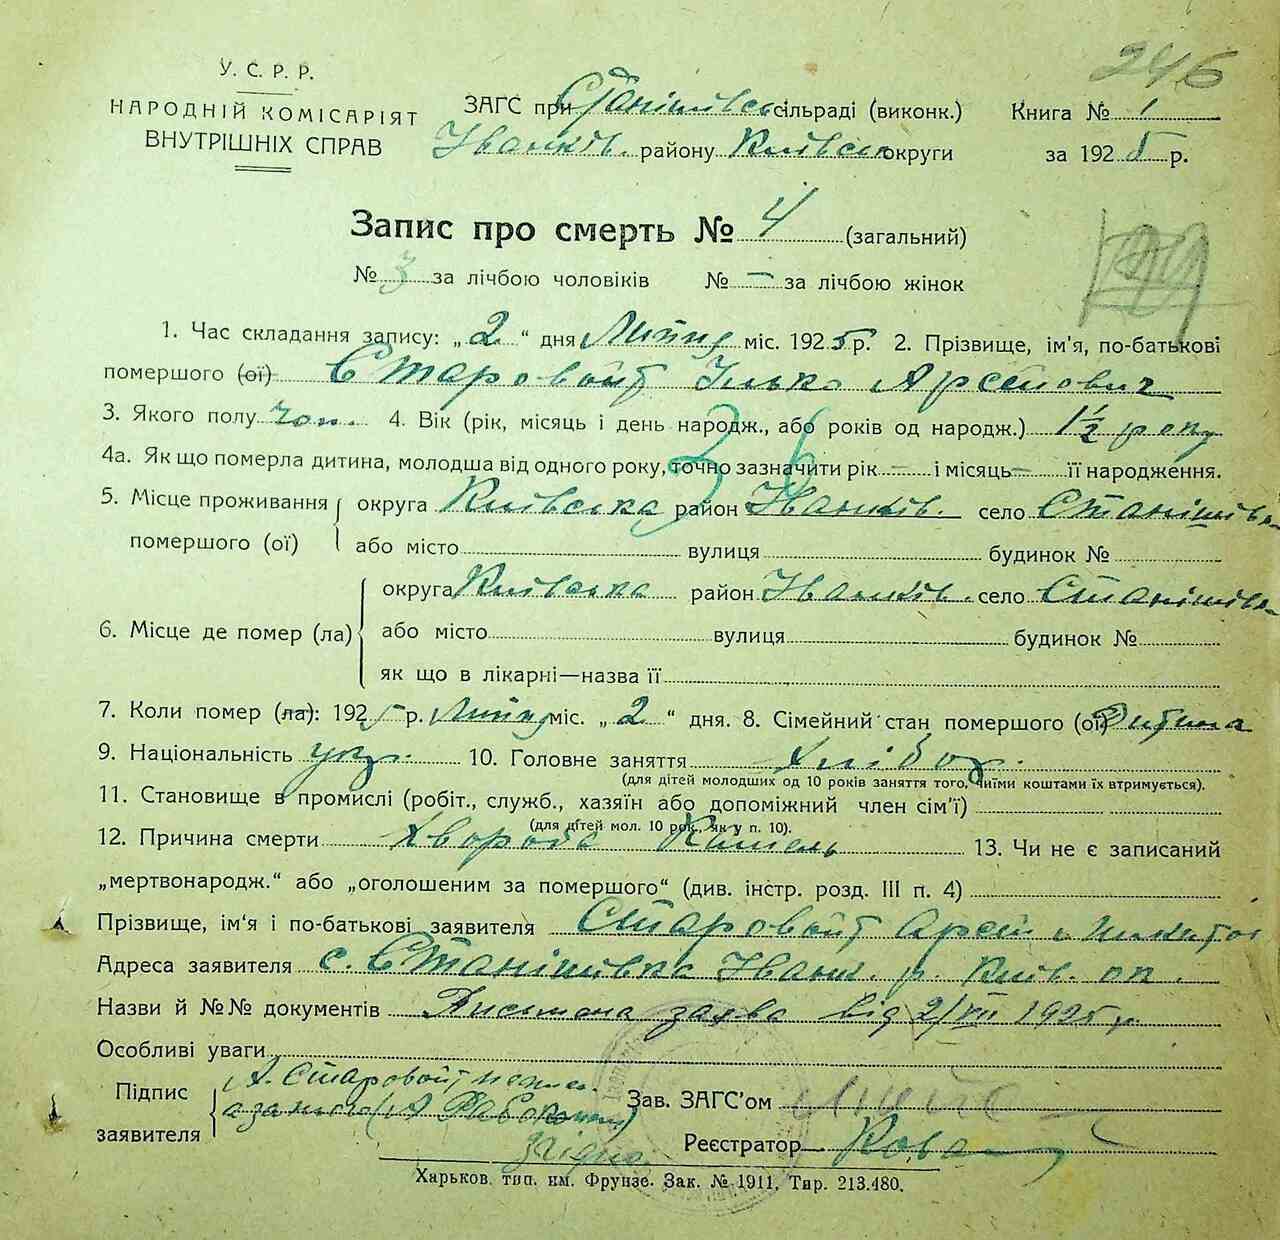 246
У. С. Р. Р.
НАРОДНІЙ КОМІСАРІЯТ
ВНУТРІШНІХ СПРАВ
ЗАГС при Станішівсь сільраді (виконк.)
Іванків. району Київськ округи
Книга № 1
за 1925 р.
Запис про смерть № 4 (загальний)
№ 3 за лічбою чоловіків № — за лічбою жінок
1. Час складання запису: „2“ дня Липня міс. 1925 р. 2. Прізвище, ім'я, по-батькові
помершого (ої) Старовойт Ілько Арсенович
3. Якого полу чол. 4. Вік (рік, місяць і день народж., або років од народж.) 1½ року
4а. Як що померла дитина, молодша від одного року, точно зазначити рік — і місяць — її народження.
36
5. Місце проживання помершого (ої) округа Київська район Іванків. село Станішівка
або місто вулиця будинок №
6. Місце де помер (ла) округа Київська район Іванків. село Станішівка
або місто вулиця будинок №
як що в лікарні—назва її
7. Коли помер (ла): 1925 р. Липня міс. „2“ дня. 8. Сімейний стан помершого (ої) Дитина
9. Національність укр. 10. Головне заняття Хлібор.
(для дітей молодших од 10 років заняття того, чиїми коштами їх втримується).
11. Становище в промислі (робіт., служб., хазяїн або допоміжний член сім'ї)
(для дітей мол. 10 рок., як у п. 10).
12. Причина смерти Хвороба Кашель 13. Чи не є записаний
„мертвонародж.“ або „оголошеним за помершого“ (див. інстр. розд. III п. 4)
Прізвище, ім'я і по-батькові заявителя Старовойт Арсен
Адреса заявителя с. Станішівка Іванк. р. Київ. ок.
Назви й №№ документів Письмена заява від 2/VII 1925 р.
Особливі уваги
Підпис заявителя А. Старовойт
Зав. ЗАГС'ом
Реєстратор Кова
Згідно
Харьков. тип. им. Фрунзе. Зак. № 1911. Тир. 213.480.